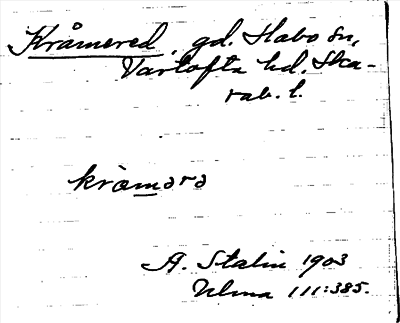 Kråmered, gd. Habo sn,
Vartofta hd. Ska-
rab. l.
kråmərə
A. Stalin 1903
Ulma 111:385.